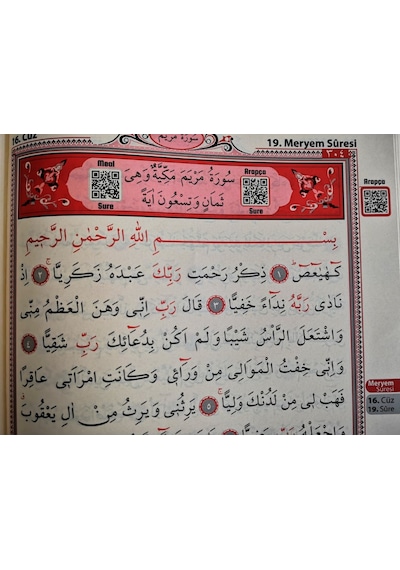 16. Cüz
سورة مريم
19. Meryem Sûresi
٣٠٤
Meal
Sure
سُورَةُ مَرْيَمَ مَكِّيَّةٌ وَهِيَ
ثَمَانٍ وَتِسْعُونَ اٰيَةً
Arapça
Sure
Arapça
بِسْمِ اللهِ الرَّحْمٰنِ الرَّحِيمِ
كٓهٰيٰعٓصٓ ﴿١﴾ ذِكْرُ رَحْمَتِ رَبِّكَ عَبْدَهُ زَكَرِيَّا ﴿٢﴾ اِذْ
نَادٰى رَبَّهُ نِدَٓاءً خَفِيًّا ﴿٣﴾ قَالَ رَبِّ اِنّٖى وَهَنَ الْعَظْمُ مِنّٖى
وَاشْتَعَلَ الرَّأْسُ شَيْبًا وَلَمْ اَكُنْ بِدُعَٓائِكَ رَبِّ شَقِيًّا ﴿٤﴾
وَاِنّٖى خِفْتُ الْمَوَالِىَ مِنْ وَرَٓائٖى وَكَانَتِ امْرَاَتٖى عَاقِرًا
فَهَبْ لٖى مِنْ لَدُنْكَ وَلِيًّا ﴿٥﴾ يَرِثُنٖى وَيَرِثُ مِنْ اٰلِ يَعْقُوبَ
وَاجْعَلْهُ رَبِّ
Meryem
Sûresi
16. Cüz
19. Sûre